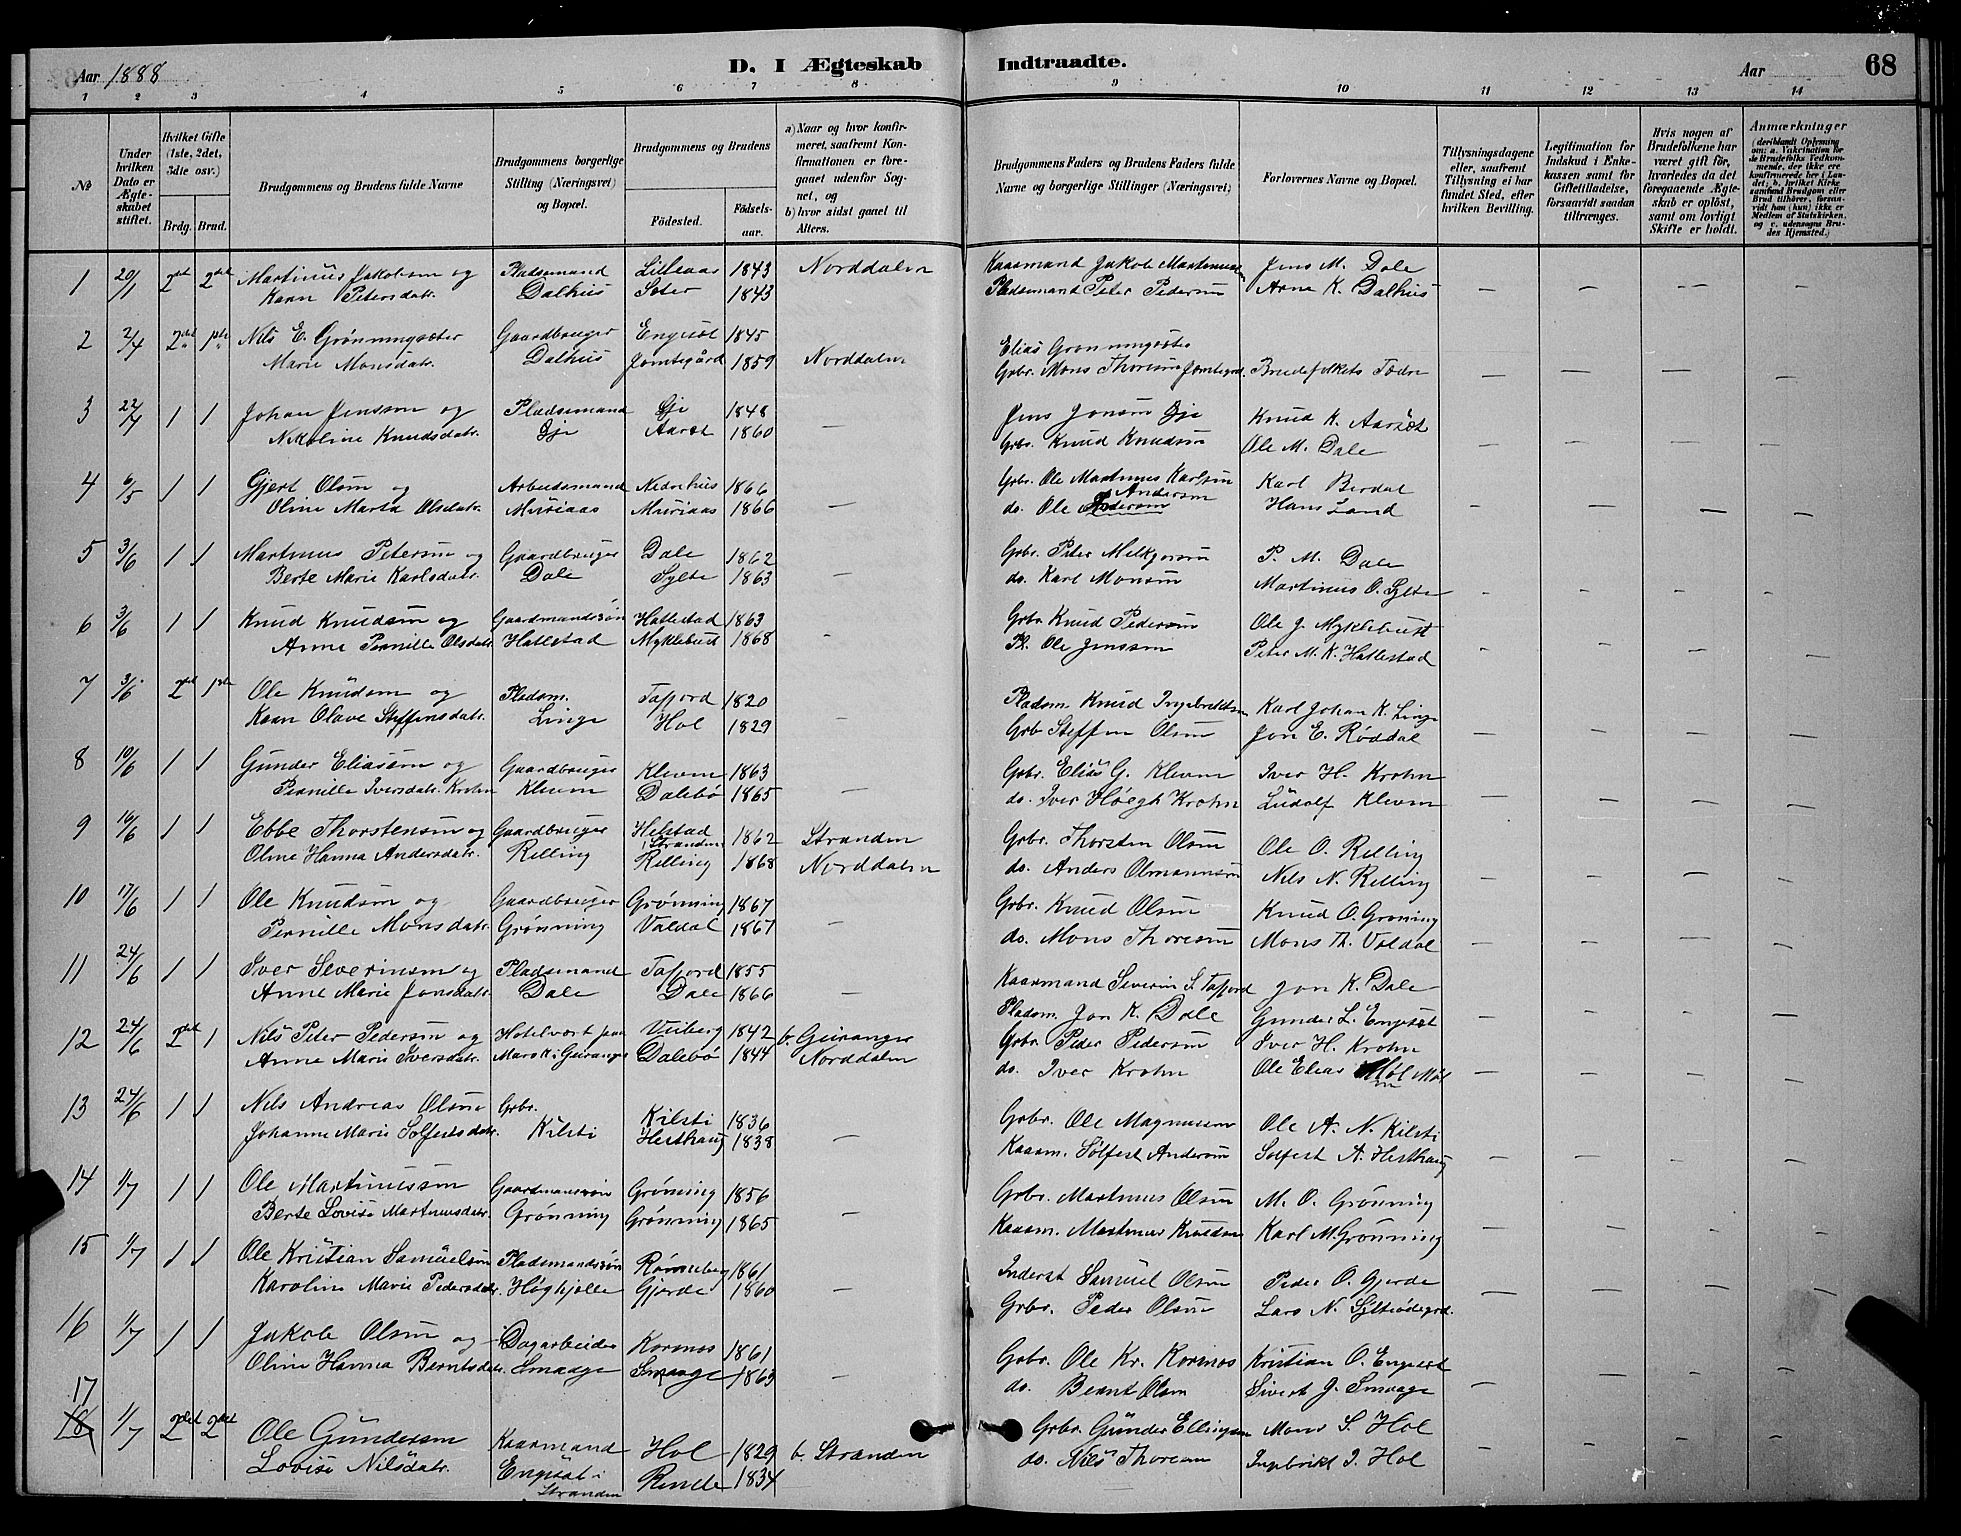 Aar 1888
D. I Ægteskab Indtraadte.
Aar 68
1 2 3 4 5 6 7 8 9 10 11 12 13 14
No
Under hvilken Dato er Ægteskabet stiftet.
Hvilket Gifte (1ste, 2det, 3die osv.)
Brdg. Brud.
Brudgommens og Brudens fulde Navne
Brudgommens borgerlige Stilling (Næringsvei) og Bopæl.
Brudgommens og Brudens
Fødested. Fødselsaar.
a) Naar og hvor konfirmeret, saafremt Konfirmationen er foregaaet udenfor Sognet, og
b) hvor sidst gaaet til Alters.
Brudgommens Faders og Brudens Faders fulde Navne og borgerlige Stillinger (Næringsvei)
Forlovernes Navne og Bopæl.
Tillysningsdagene eller, saafremt Tillysning ei har fundet Sted, efter hvilken Bevilling.
Legitimation for Indskud i Enkekassen samt for Giftetilladelse, forsaavidt saadan tiltrænges.
Hvis nogen af Brudefolkene har været gift før, hvorledes da det foregaaende Ægteskab er opløst, samt om lovligt Skifte er holdt.
Anmærkninger (deriblandt Oplysning om: a. Vakcination for de Brudefolks Vedkommende, der ikke ere konfirmerede her i Landet; b. hvilket Kirkesamfund Brudgom eller Brud tilhører, forsaavidt han (hun) ikke er Medlem af Statskirken, og c. udensogns Brudes Hjemsted.)
1 20/1 2det 2det Martinus Jakobsen og Pladsemand Lilleaas 1843 Norddalen Kaarmand Jakob Martinussen Jens M. Dale
Karn Petersdatr. Dalhus Seter 1843 Pladsemand Peter Pedersen Arne K. Dalhus
2 2/4 2det 1ste Nils E. Grønningsæter Gaardbruger Engeset 1845 Elias Grønningsæter
Marie Monsdatr. Dalhus Jamtegård 1859 Norddalen Grbr. Mons Thoresen Jamtegrd. Brudefolkets Fædre
3 22/4 1 1 Johan Jenssen og Pladsemand Øje 1848 Jens Jonsen Øje Knud K. Aarset
Nikoline Knudsdatr. Øje Aarset 1860 Grbr. Knud Knudsen Ole M. Dale
4 6/5 1 1 Gjert Olsen og Arbeidsmand Nedrehus 1866 Grbr. Ole Martinus Karlsen Karl Berdal
Oline Marta Olsdatr. Muriaas Muriaas 1866 do. Ole Andersen Hans Land
5 3/6 1 1 Martinus Petersen og Gaardbruger Dale 1862 Grbr. Peter Melkgersen P. M. Dale
Berte Marie Karlsdatr. Dale Sylte 1863 do. Karl Monsen Martinus O. Sylte
6 3/6 1 1 Knud Knudsen og Gaardmandssøn Hattestad 1863 Grbr Knud Pedersen Ole J. Myklebust
Anne Pernille Olsdatr. Hattestad Myklebust 1868 Pl. Ole Jenssen Peter M. K. Hattestad
7 3/6 2det 1ste Ole Knudsen og Pladsm. Tafjord 1820 Pladsm. Knud Ingebrektsen Karl Johan K. Linge
Karn Olave Steffensdatr. Linge Hol 1829 Grb Steffen Olsen Jon E. Røddal
8 10/6 1 1 Gunder Eliassen og Gaardbruger Kleven 1863 Grbr. Elias G. Kleven Iver H. Krohn
Pernille Iversdatr. Krohn Kleven Dalebø 1865 do. Iver Høegh Krohn Ludolf Kleven
9 16/6 1 1 Ebbe Thorstensen og Gaardbruger Helstad i Stranden 1862 Stranden Grbr. Thorsten Olsen Ole O. Relling
Oline Hanna Andersdatr. Relling Relling 1868 Norddalen do. Anders Olmannsen Nils N. Relling
10 17/6 1 1 Ole Knudsen og Gaardbruger Grønning 1867 Grbr. Knud Olsen Knud O. Grønning
Pernille Monsdatr. Grønning Valdal 1867 do. Mons Thoresen Mons Th. Valdal
11 24/6 1 1 Iver Severinsen og Pladsemand Tafjord 1855 Kaarmand Severin S. Tafjord Jon K. Dale
Anne Marie Jonsdatr. Dale Dale 1866 Pladsm. Jon K. Dale Gunder L. Engeset
12 24/6 2det 1 Nils Peter Pedersen og Hotelvært paa Viiberg 1842 b. Geiranger Grbr. Peder Pedersen Iver H. Krohn
Anne Marie Iversdatr. Marok i Geiranger Dalebø 1844 Norddalen do. Iver Krohn Ole Elias Møl
13 24/6 1 1 Nils Andreas Olsen Grbr. Kilsti 1836 Grbr. Ole Magnussen Ole A. N. Kilsti
Johanne Marie Solfestsdatr. Kilsti Hesthaug 1838 Kaarm. Sølfest Andersen Solfest A. Hesthaug
14 1/7 1 1 Ole Martinussen Gaardmandssøn Grønning 1856 Grbr. Martinus Olsen M. O. Grønning
Berte Lovise Martinusdatr. Grønning Grønning 1865 Kaarm. Martinus Knudsen Karl M. Grønning
15 1/7 1 1 Ole Kristian Samuelsen Pladsmandssøn Rønneberg 1861 Inderst Samuel Olsen Peder O. Gjerde
Karoline Marie Pedersdatr. Høghjelle Gjerde 1860 Grbr. Peder Olsen Lars N. Sylteødegrd.
16 1/7 1 1 Jakob Olsen og Dagarbeider Korsnes 1861 Grbr. Ole Kr. Korsnes Kristian O. Engeset
Oline Hanna Berntsdatr. Smaage Smaage 1863 do. Bernt Olsen Sivert J. Smaage
17 18 1/7 2det 2det Ole Gundersen Kaarmand Hol 1829 b. Stranden Grbr. Gunder Ellingsen Mons S. Hol
Lovise Nilsdatr. Engeset i Stranden Rindle 1834 do. Nils Thoresen Ingebrikt I. Hol